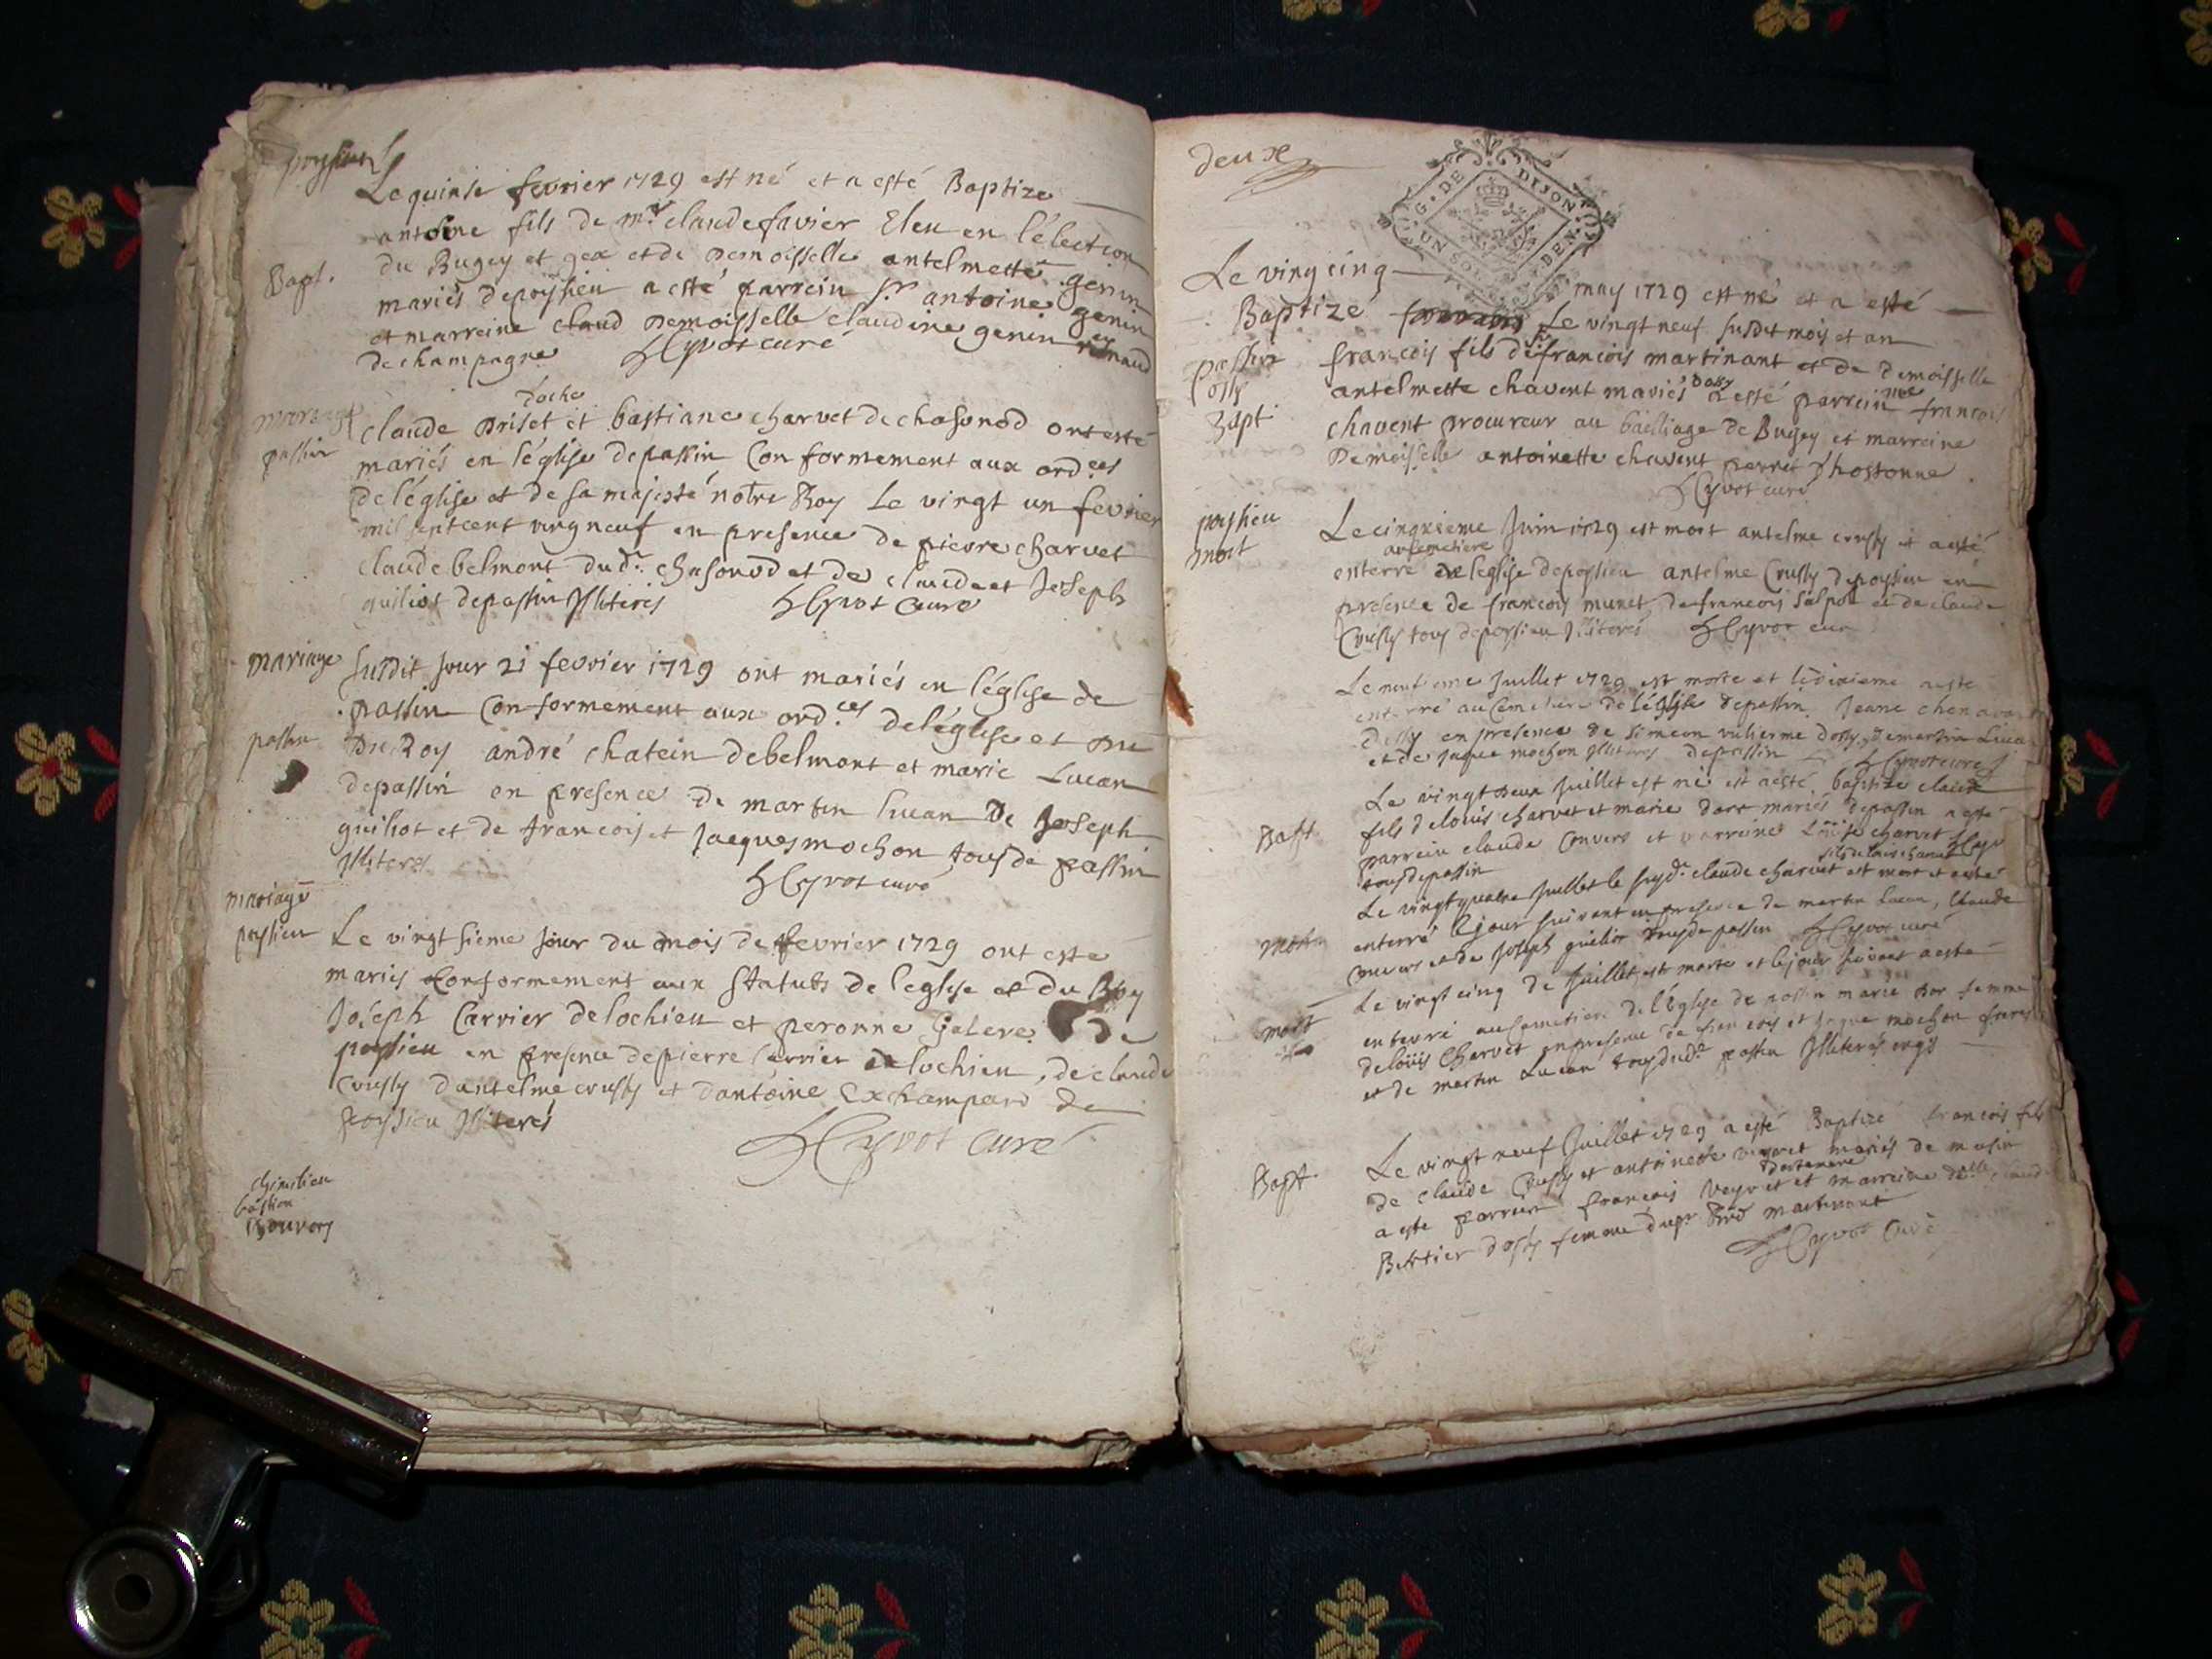 poyssieu
Le quinse fevrier 1729 est né et a esté Baptize
antoine fils de mr. claude favier Eleu en l'élection
du Bugey et gex et de Demoisselle antelmette genin
Bapt. mariés de poyssieu a esté parrein sr antoine genin
et marreine claud Demoisselle claudine genin
de champagne HCyvot curé
d'oche
mariage claude Briset et bastiane charvet de chasonod ont esté
passin mariés en l'église de passin Conformement aux ord.ces
de l'église et de sa majesté notre Roy Le vingt un fevrier
mil septcent vingneuf en presence de pierre charvet
claude belmont dud.t chasonod et de claude et Joseph
guiliot de passin Illiterés HCyvot Curé
mariage susdit jour 21 fevrier 1729 ont mariés en l'église de
passin Conformement aux ord.ces de l'église et du
passin Du Roy andré chatein de belmont et marie Lucan
de passin en presence de martin lucan De Joseph
guiliot et de francois et Jacques mochon tous de passin
Illiterés HCyvot curé
mariage
poyssieu Le vingt sieme jour du mois de fevrier 1729 ont esté
mariés Conformement aux statuts de l'eglise et du Roy
Joseph Carrier de lochieu et peronne Galere de
poyssieu en presence de pierre Carrier de lochieu, de claude
Crussy d'antelme crussy et d'antoine Exchampard de
poyssieu Illiterés
HCyvot Curé
bastian
deux
G. DE DIJON
UN SOL DEN
Le vingt cinq may 1729 est né et a esté
Baptizé Le vingt neuf susdit mois et an
passin francois fils de sr francois martinant et de Demoisselle
ossy antelmette chavent mariés Dossy a esté parrein me francois
Bapt. chavent procureur au bailliage de Bugey et marreine
Demoisselle antoinette chavent perret d'hostonne
HCyvot curé
poyssieu Le cinquieme Juin 1729 est mort antelme crussy et a esté
mort au semetiere
enterré de l'eglise de poyssieu antelme Crussy de poyssieu en
presence de francois munet, de francois salpol et de claude
Crussy tous de poyssieu Illiterés HCyvot curé
Le neuf eme Juillet 1729 est morte et le dixieme a esté
enterré au Cemetiere de l'église de passin Jeane
Dossy en presence de simeon vulierme Dossy, de martin Lucan
et de Jaque mochon Illiterés de passin HCyvot curé
Le vingt deux Juillet est né et a esté baptize claude
Bapt. fils de louis charvet et marie mariés de passin a esté
parrein claude Convers et marreine Louise charvet
tous de passin
fils de louis charvet
Le vingt quatre Juillet le susd.t claude charvet est mort et a esté
mort enterré le jour suivant en presence de martin Lucan, Claude
Convers et de Joseph guiliot tous de passin HCyvot curé
Le vingt cinq de Juillet est morte et le jour suivant a esté
mort enterré au semetiere de l'église de passin marie femme
de loüis Charvet en presence de francois et Jaque mochon freres
et de martin Lucan tous dud.t passin Illiterés
Le vingt neuf Juillet 1729 a esté Baptizé francois fils
Bapt. de claude Crussy et antoinette veyret mariés de
a esté parrein francois veyret et marreine
Bertier d'ossy femme martinant
HCyvot Curé